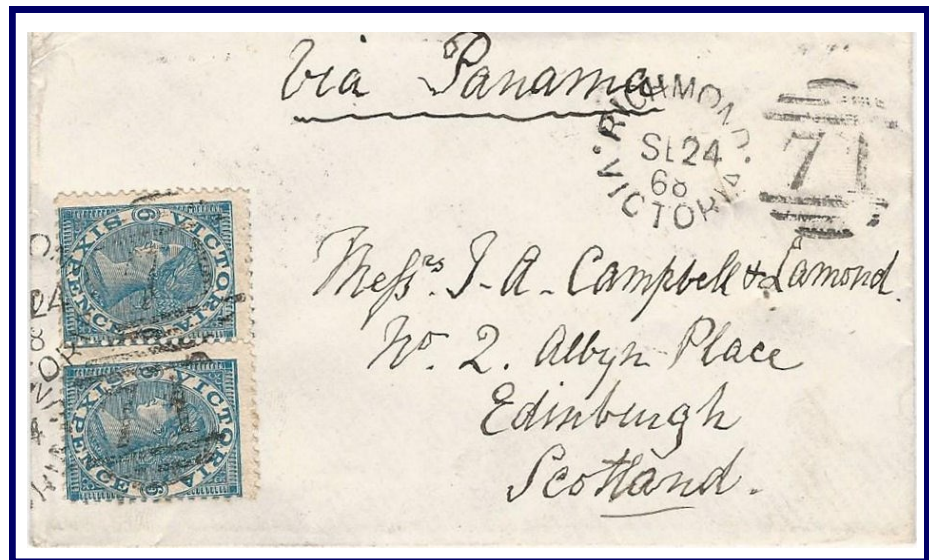 Via Panama
RICHMOND
SE 24
68
VICTORIA
71
VICTORIA
SIXPENCE
6
6
VICTORIA
SIXPENCE
6
6
Messrs. J. A. Campbell & Lamond.
No. 2. Albyn Place
Edinburgh
Scotland.